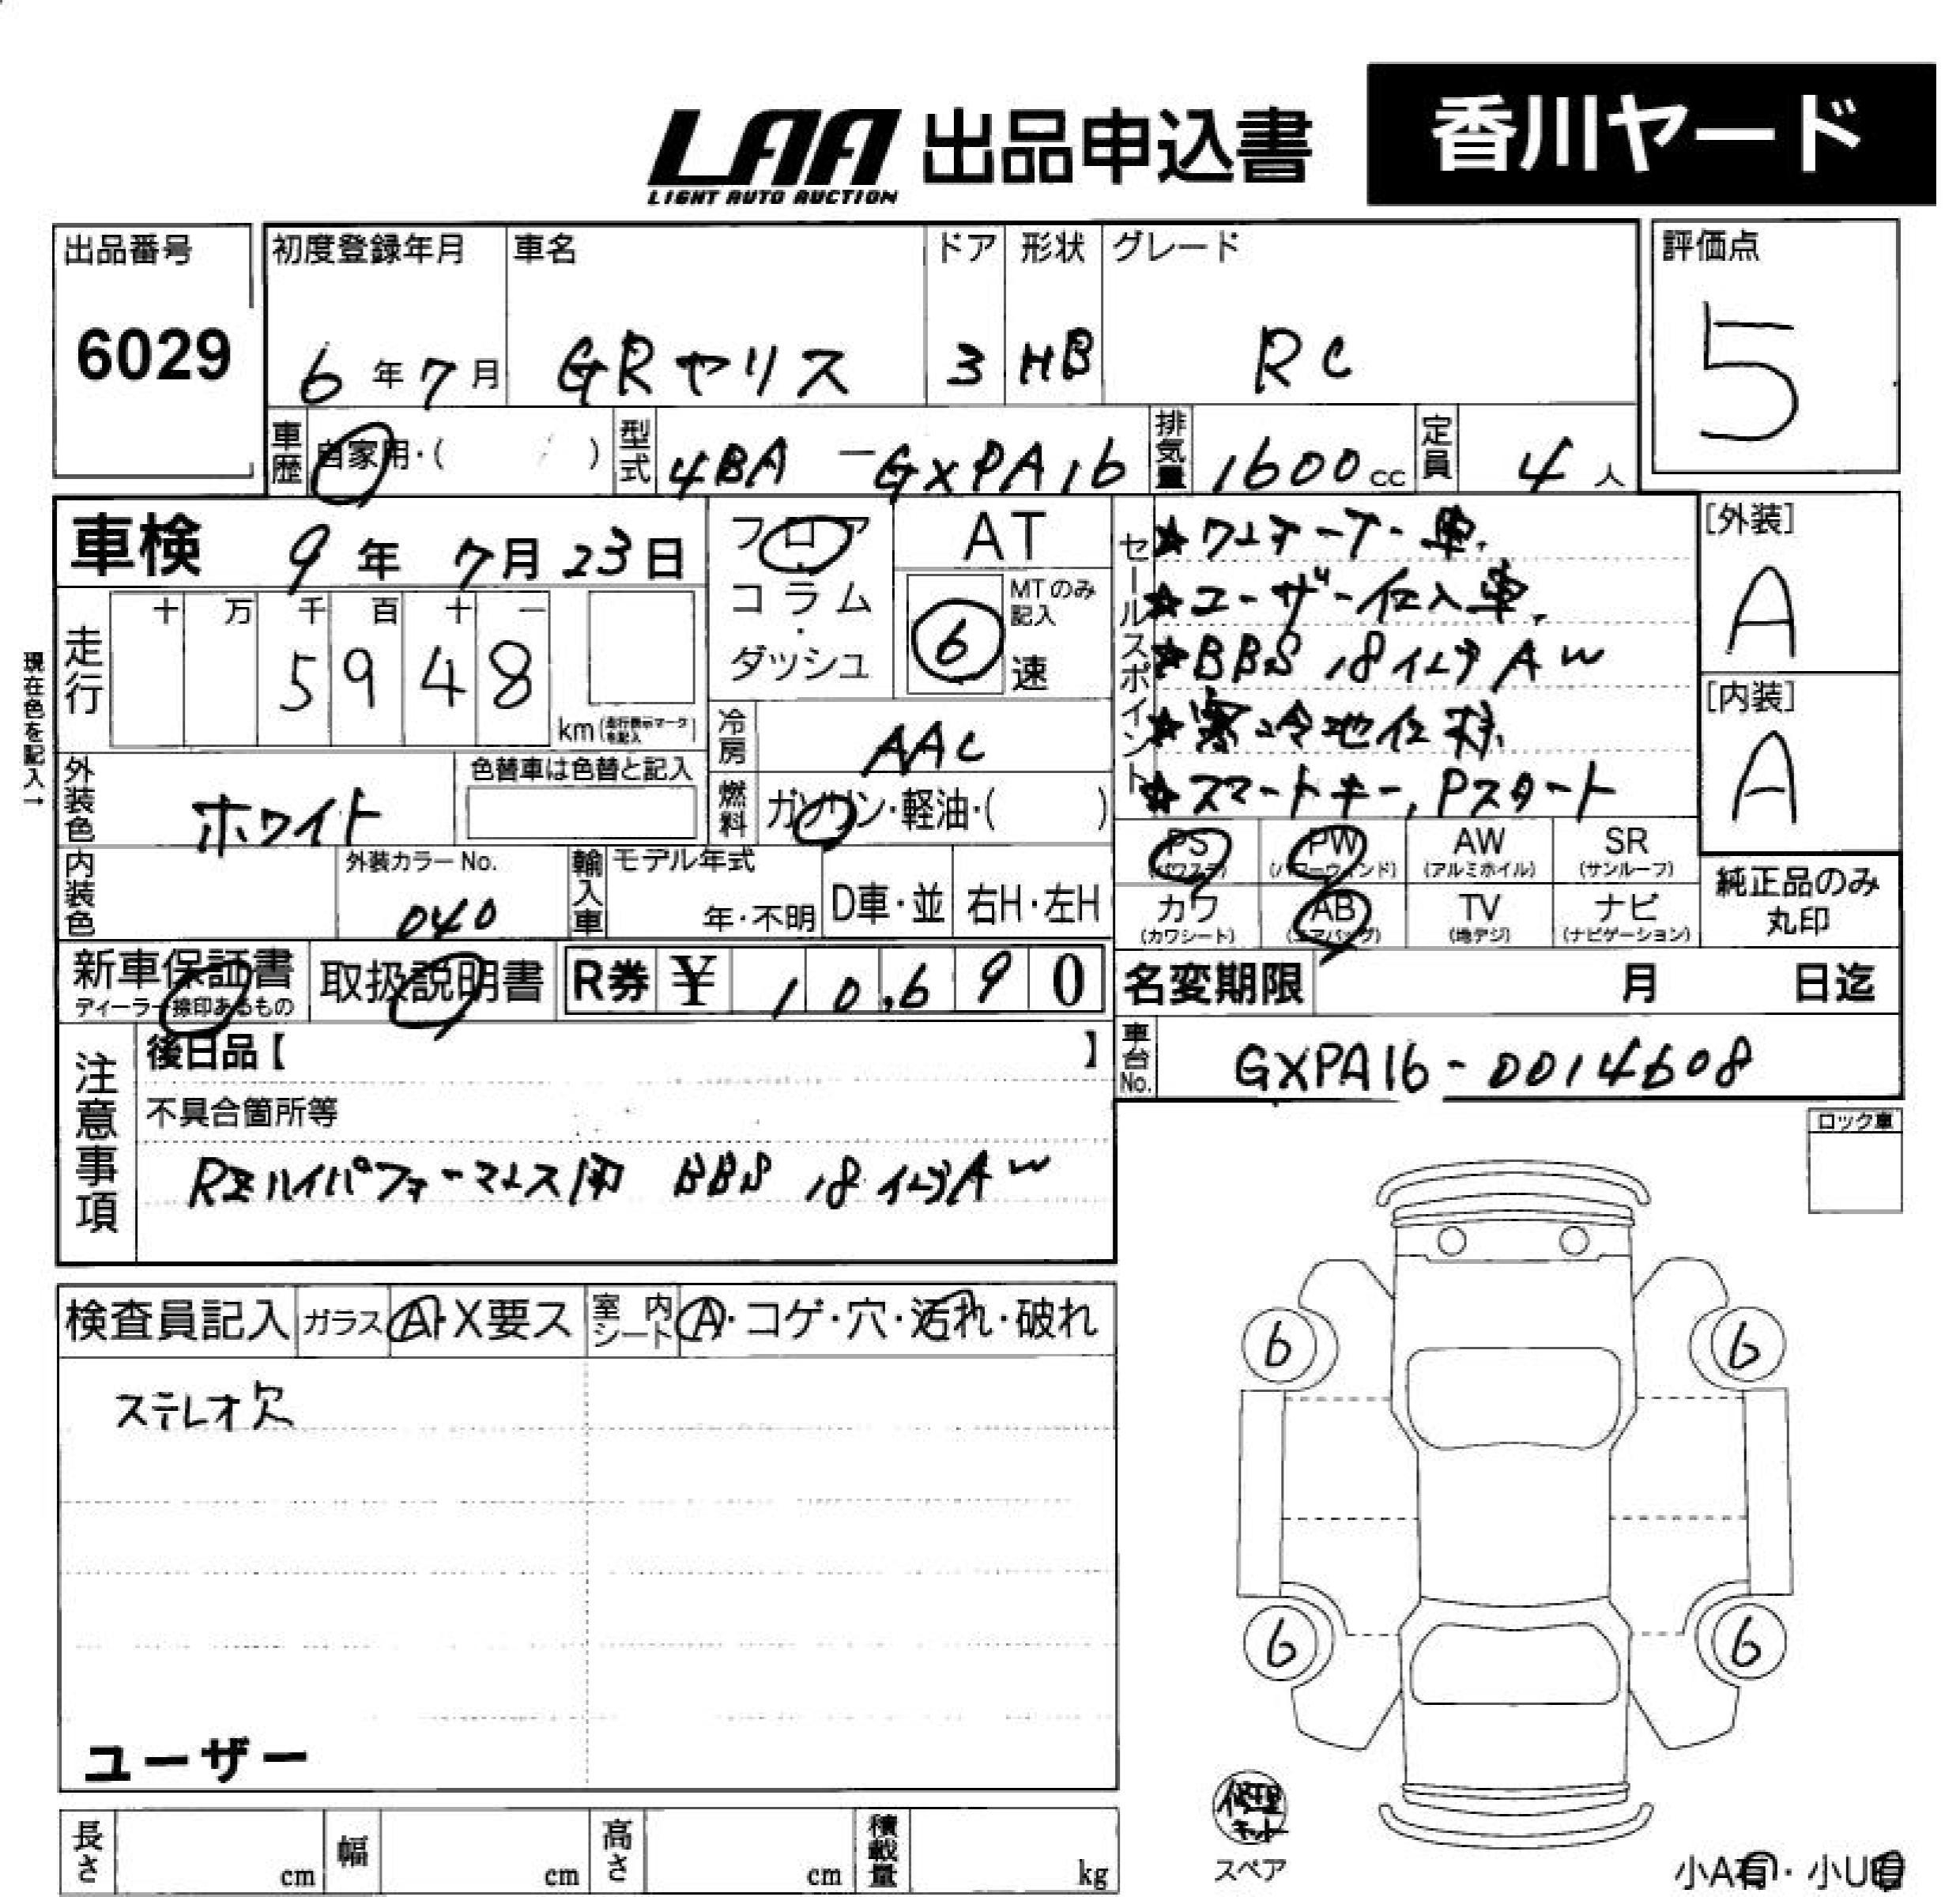 LAA 出品申込書 香川ヤード
LIGHT AUTO AUCTION
出品番号 初度登録年月 車名 ドア 形状 グレード 評価点
6029 6年7月 GRヤリス 3 HB RC 5
車歴 自家用・( ) 型式 4BA-GXPA16 排気量 1600cc 定員 4人
車検 9年7月23日
フロア・コラム・ダッシュ
AT
6 MTのみ記入 速
現在色を記入→
走行 十 万 千 百 十 一
5948
km(走行表示マークを記入)
冷房 AAC
燃料 ガソリン・軽油・( )
外装色 ホワイト 色替車は色替と記入
内装色 外装カラーNo. 040
輸入車 モデル年式 年・不明 D車・並 右H・左H
新車保証書 ディーラー捺印あるもの 取扱説明書 R券 ¥ 10,690
セールスポイント
★ワンオーナー車.
★ユーザー仕入車.
★BBS 18インチAW
★寒冷地仕様.
★スマートキー,Pスタート
[外装]
A
[内装]
A
PS (パワステ) PW (パワーウィンド) AW (アルミホイル) SR (サンルーフ)
カワ (カワシート) AB (エアバッグ) TV (地デジ) ナビ (ナビゲーション)
純正品のみ
丸印
名変期限 月 日迄
車台No. GXPA16-0014608
注意事項
後日品【 】
不具合箇所等
RZハイパフォーマンス用 BBS 18インチAW
ロック車
検査員記入 ガラス A・X要ス 室内シート A・コゲ・穴・汚れ・破れ
ステレオ欠
ユーザー
6 6
6 6
修理キット
スペア
小A有・小U有
長さ cm 幅 cm 高さ cm 積載量 kg